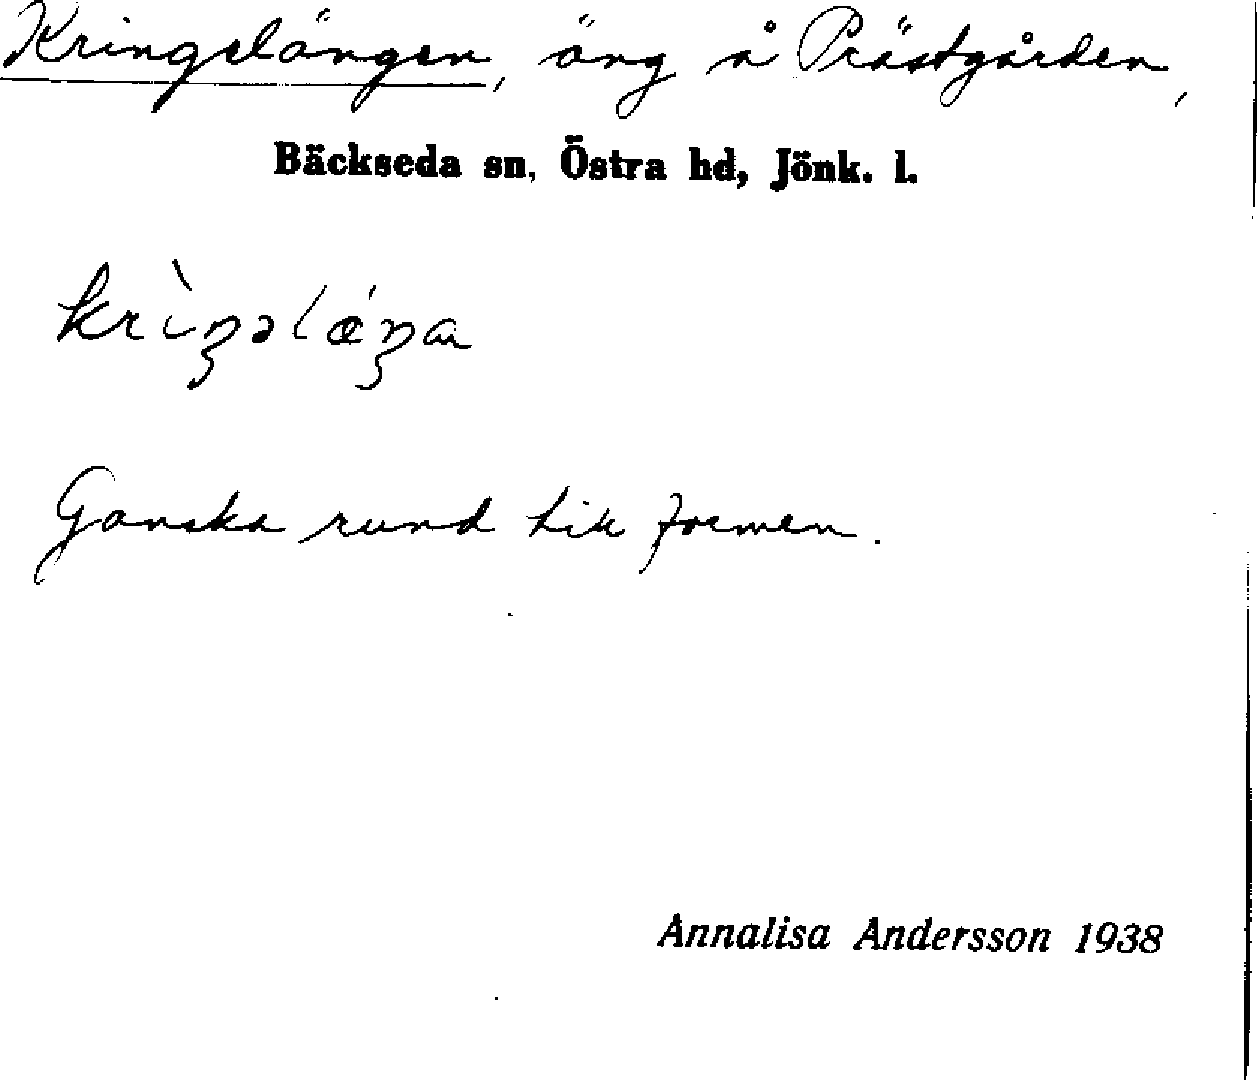 Kringelängen, äng å Prästgården,
Bäckseda sn, Östra hd, Jönk. l.
krìŋəlǽŋa
Ganska rund till formen.
Annalisa Andersson 1938